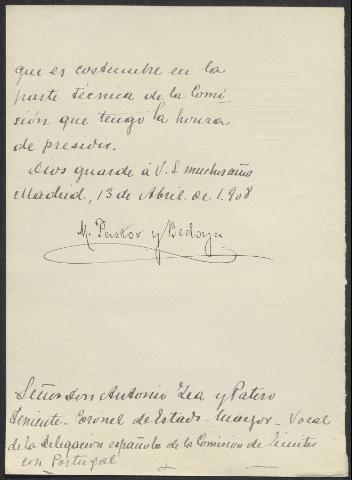 que es costumbre en la
parte técnica de la Comi
sión que tengo la honra
de presidir.
Dios guarde á V. S muchos años
Madrid, 13 de Abril de 1.908
M. y Bedoya
Señor Don Antonio y
Teniente-Coronel de Estado-Mayor-Vocal
de la Delegación española de la Comisión de límites
con Portugal